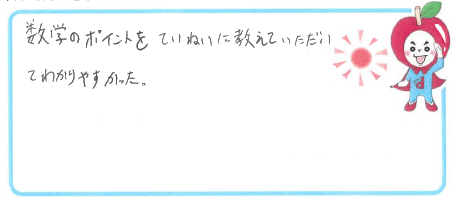 数学のポイントをていねいに教えていただい
てわかりやすかった。